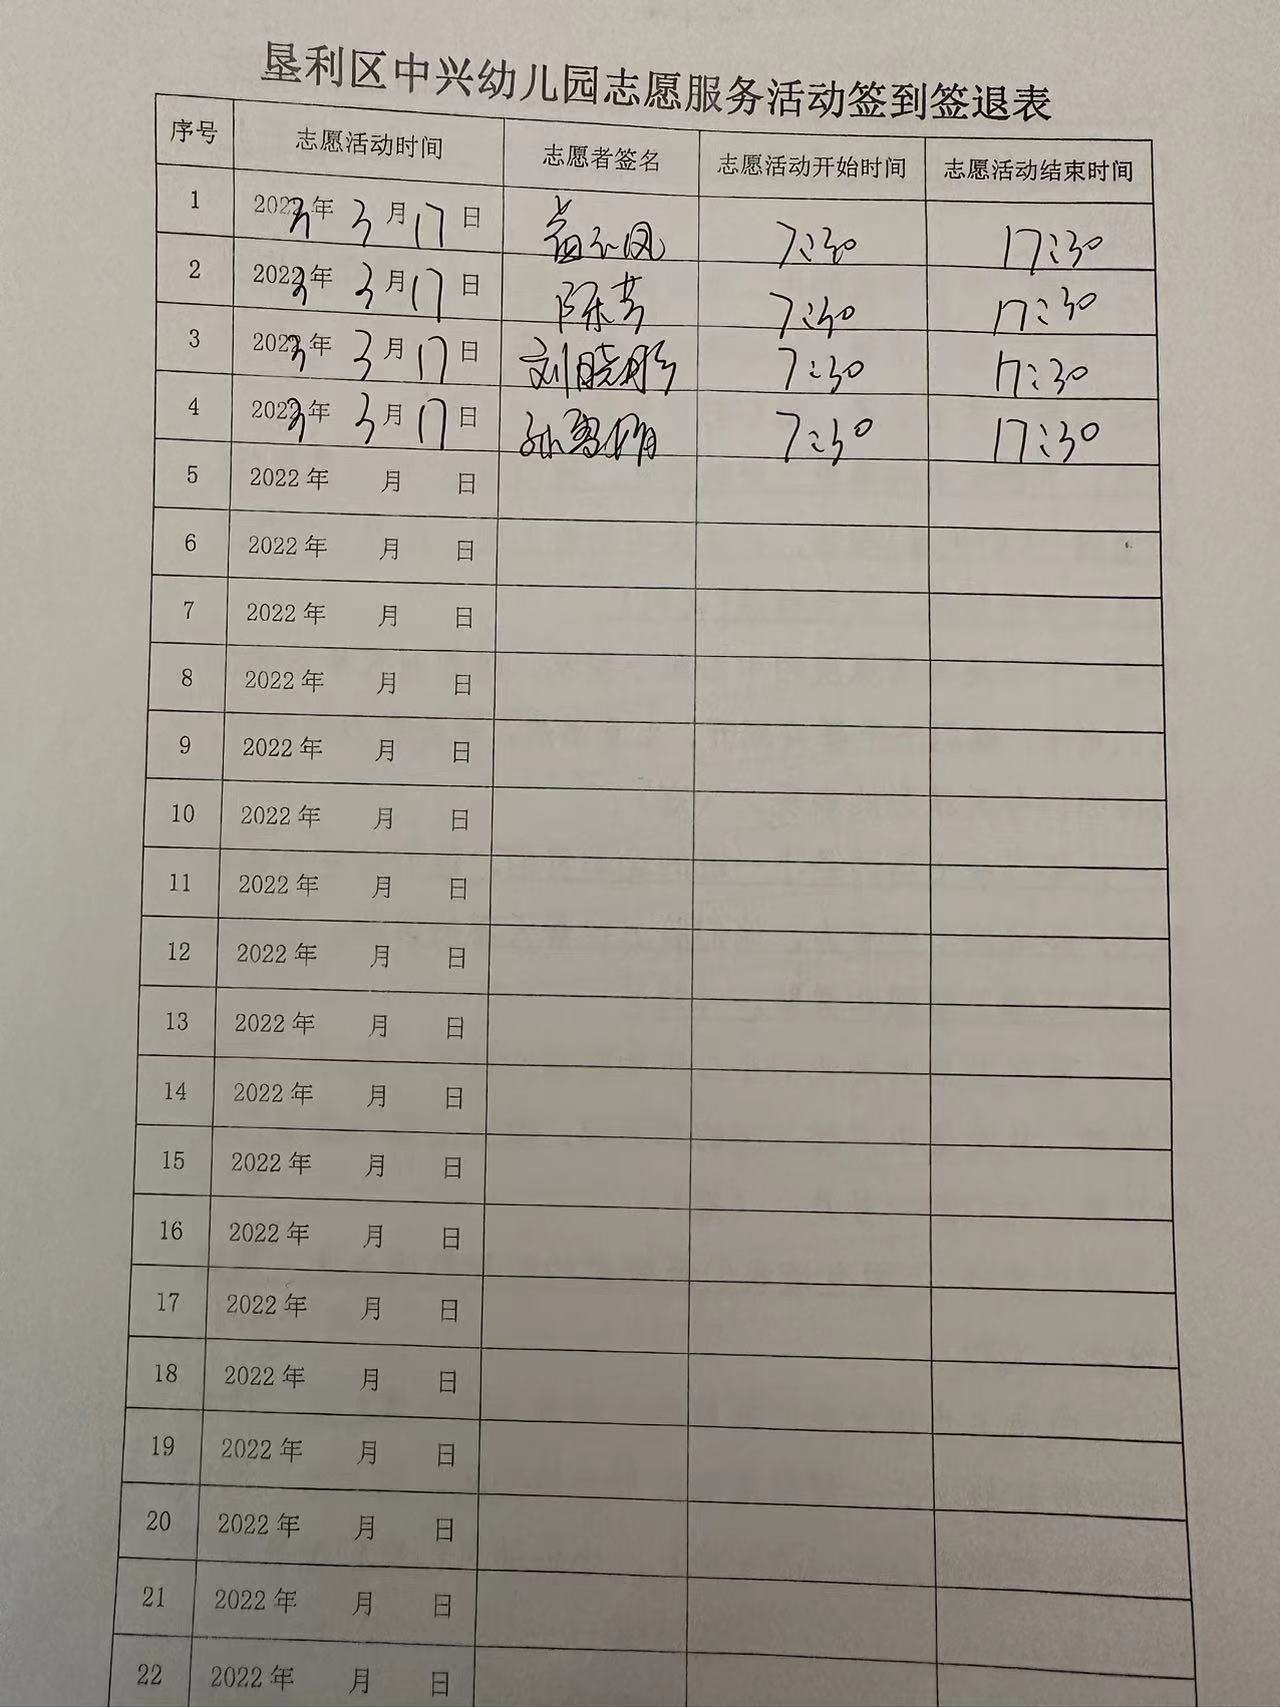 垦利区中兴幼儿园志愿服务活动签到签退表
序号 志愿活动时间 志愿者签名 志愿活动开始时间 志愿活动结束时间
1 2023年 3月17日 7:30 17:30
2 2023年 3月17日 陈芳 7:30 17:30
3 2023年 3月17日 刘晓彤 7:30 17:30
4 2023年 3月17日 7:30 17:30
5 2022年 月 日
6 2022年 月 日
7 2022年 月 日
8 2022年 月 日
9 2022年 月 日
10 2022年 月 日
11 2022年 月 日
12 2022年 月 日
13 2022年 月 日
14 2022年 月 日
15 2022年 月 日
16 2022年 月 日
17 2022年 月 日
18 2022年 月 日
19 2022年 月 日
20 2022年 月 日
21 2022年 月 日
22 2022年 月 日